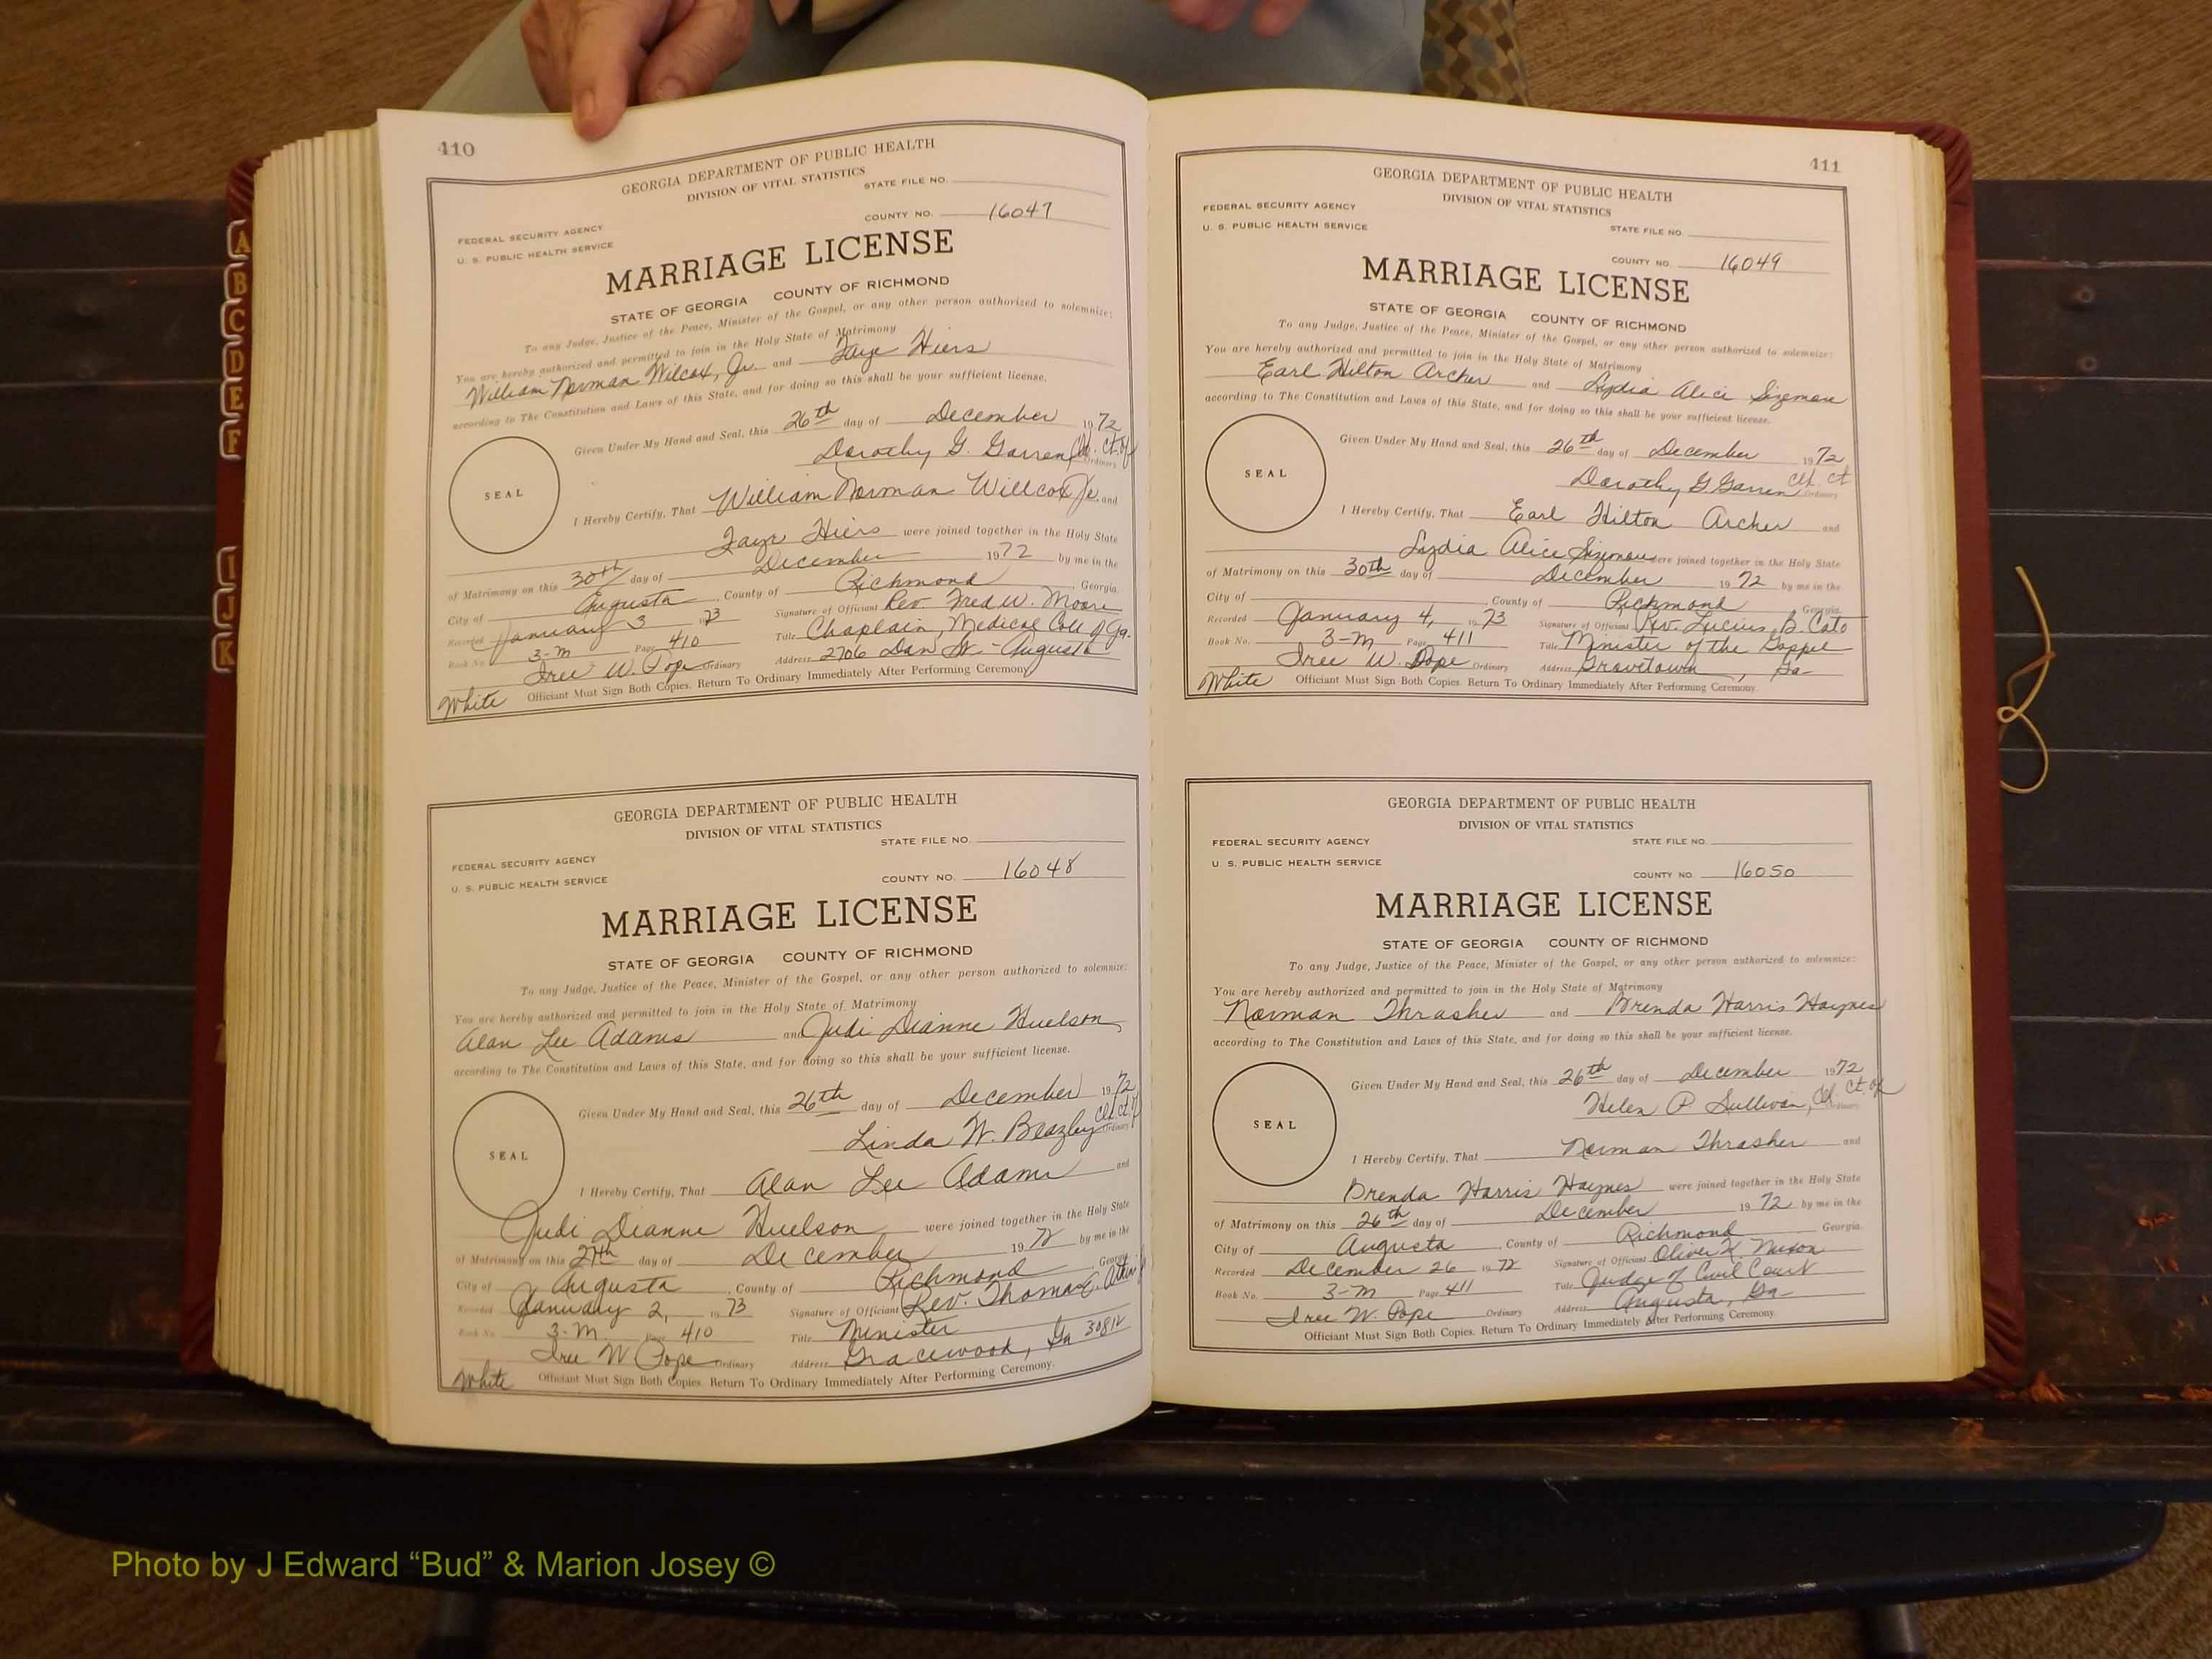 A
B
C
D
E
F
I
J
K
410
GEORGIA DEPARTMENT OF PUBLIC HEALTH
DIVISION OF VITAL STATISTICS
STATE FILE NO.
FEDERAL SECURITY AGENCY
U. S. PUBLIC HEALTH SERVICE
COUNTY NO. 16047
MARRIAGE LICENSE
STATE OF GEORGIA COUNTY OF RICHMOND
To any Judge, Justice of the Peace, Minister of the Gospel, or any other person authorized to solemnize:
You are hereby authorized and permitted to join in the Holy State of Matrimony
William Norman Wilcox, Jr. and Faye Hiers
according to The Constitution and Laws of this State, and for doing so this shall be your sufficient license.
Given Under My Hand and Seal, this 26th day of December 1972
Dorothy G. Garren Clk. Ct. of Ordinary
SEAL
I Hereby Certify, That William Norman Willcox Jr. and
Faye Hiers were joined together in the Holy State
of Matrimony on this 30th day of December 1972 by me in the
City of Augusta, County of Richmond, Georgia.
Recorded January 3 1973 Signature of Officiant Rev. Fred W. Moore
Book No. 3-M Page 410 Title Chaplain, Medical Coll of Ga.
Iree W. Pope Ordinary Address 2706 Dan St. - Augusta
White Officiant Must Sign Both Copies. Return To Ordinary Immediately After Performing Ceremony
GEORGIA DEPARTMENT OF PUBLIC HEALTH
DIVISION OF VITAL STATISTICS
STATE FILE NO.
FEDERAL SECURITY AGENCY
U. S. PUBLIC HEALTH SERVICE
COUNTY NO. 16048
MARRIAGE LICENSE
STATE OF GEORGIA COUNTY OF RICHMOND
To any Judge, Justice of the Peace, Minister of the Gospel, or any other person authorized to solemnize:
You are hereby authorized and permitted to join in the Holy State of Matrimony
Alan Lee Adams and Judi Dianne Huelson
according to The Constitution and Laws of this State, and for doing so this shall be your sufficient license.
Given Under My Hand and Seal, this 26th day of December 1972
Linda W. Beazley Clk. Ct. of Ordinary
SEAL
I Hereby Certify, That Alan Lee Adams and
Judi Dianne Huelson were joined together in the Holy State
of Matrimony on this 27th day of December 1972 by me in the
City of Augusta, County of Richmond, Georgia
Recorded January 2, 1973 Signature of Officiant Rev. Thomas E.
Book No. 3-M. Page 410 Title Minister
Iree W Pope Ordinary Address Gracewood, Ga 30812
White Officiant Must Sign Both Copies. Return To Ordinary Immediately After Performing Ceremony.
411
GEORGIA DEPARTMENT OF PUBLIC HEALTH
DIVISION OF VITAL STATISTICS
FEDERAL SECURITY AGENCY
U. S. PUBLIC HEALTH SERVICE
STATE FILE NO.
COUNTY NO. 16049
MARRIAGE LICENSE
STATE OF GEORGIA COUNTY OF RICHMOND
To any Judge, Justice of the Peace, Minister of the Gospel, or any other person authorized to solemnize:
You are hereby authorized and permitted to join in the Holy State of Matrimony
Earl Hilton Archer and Lydia Alice Sizemore
according to The Constitution and Laws of this State, and for doing so this shall be your sufficient license.
Given Under My Hand and Seal, this 26th day of December 1972
Dorothy G. Garren Clk. Ct Ordinary
SEAL
I Hereby Certify, That Earl Hilton Archer and
Lydia Alice Sizemore were joined together in the Holy State
of Matrimony on this 30th day of December 1972 by me in the
City of , County of Richmond Georgia.
Recorded January 4, 1973 Signature of Officiant Rev. Lucius B. Cato
Book No. 3-M Page 411 Title Minister of the Gospel
Iree W. Pope Ordinary Address Grovetown, Ga-
White Officiant Must Sign Both Copies. Return To Ordinary Immediately After Performing Ceremony.
GEORGIA DEPARTMENT OF PUBLIC HEALTH
DIVISION OF VITAL STATISTICS
FEDERAL SECURITY AGENCY
STATE FILE NO.
U. S. PUBLIC HEALTH SERVICE
COUNTY NO. 16050
MARRIAGE LICENSE
STATE OF GEORGIA COUNTY OF RICHMOND
To any Judge, Justice of the Peace, Minister of the Gospel, or any other person authorized to solemnize:
You are hereby authorized and permitted to join in the Holy State of Matrimony
Norman Thrasher and Brenda Harris Haynes
according to The Constitution and Laws of this State, and for doing so this shall be your sufficient license.
Given Under My Hand and Seal, this 26th day of December 1972
Helen P. Sullivan, Clk. Ct. of Ordinary
SEAL
I Hereby Certify, That Norman Thrasher and
Brenda Harris Haynes were joined together in the Holy State
of Matrimony on this 26th day of December 1972 by me in the
City of Augusta, County of Richmond Georgia.
Recorded December 26 1972 Signature of Officiant Oliver K. Mixon
Book No. 3-M Page 411 Title Judge of Civil Court
Iree W. Pope Ordinary Address Augusta, Ga-
Officiant Must Sign Both Copies. Return To Ordinary Immediately After Performing Ceremony.
Photo by J Edward “Bud” & Marion Josey ©